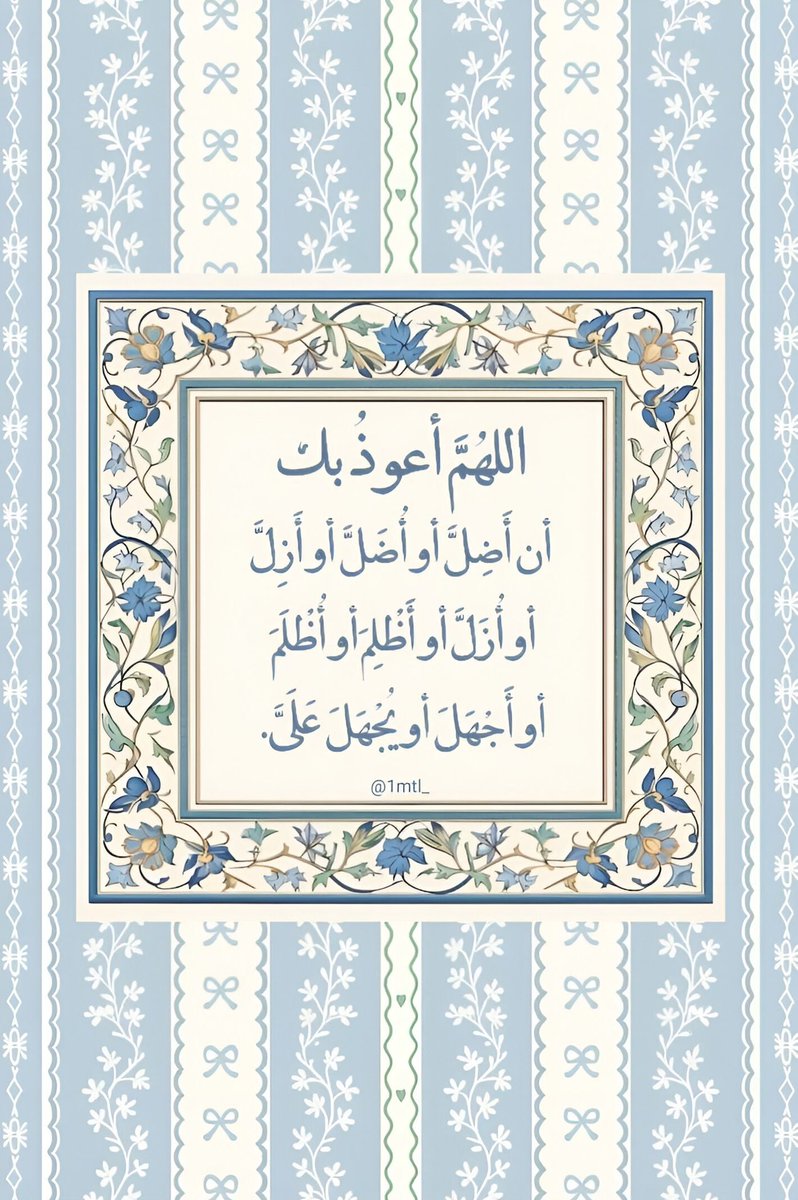 اللهُمَّ أعوذُ بك
أن أَضِلَّ أو أُضَلَّ أو أَزِلَّ
أو أُزَلَّ أو أَظْلِمَ أو أُظْلَمَ
أو أَجْهَلَ أو يُجْهَلَ عَلَيَّ.
@1mtl_